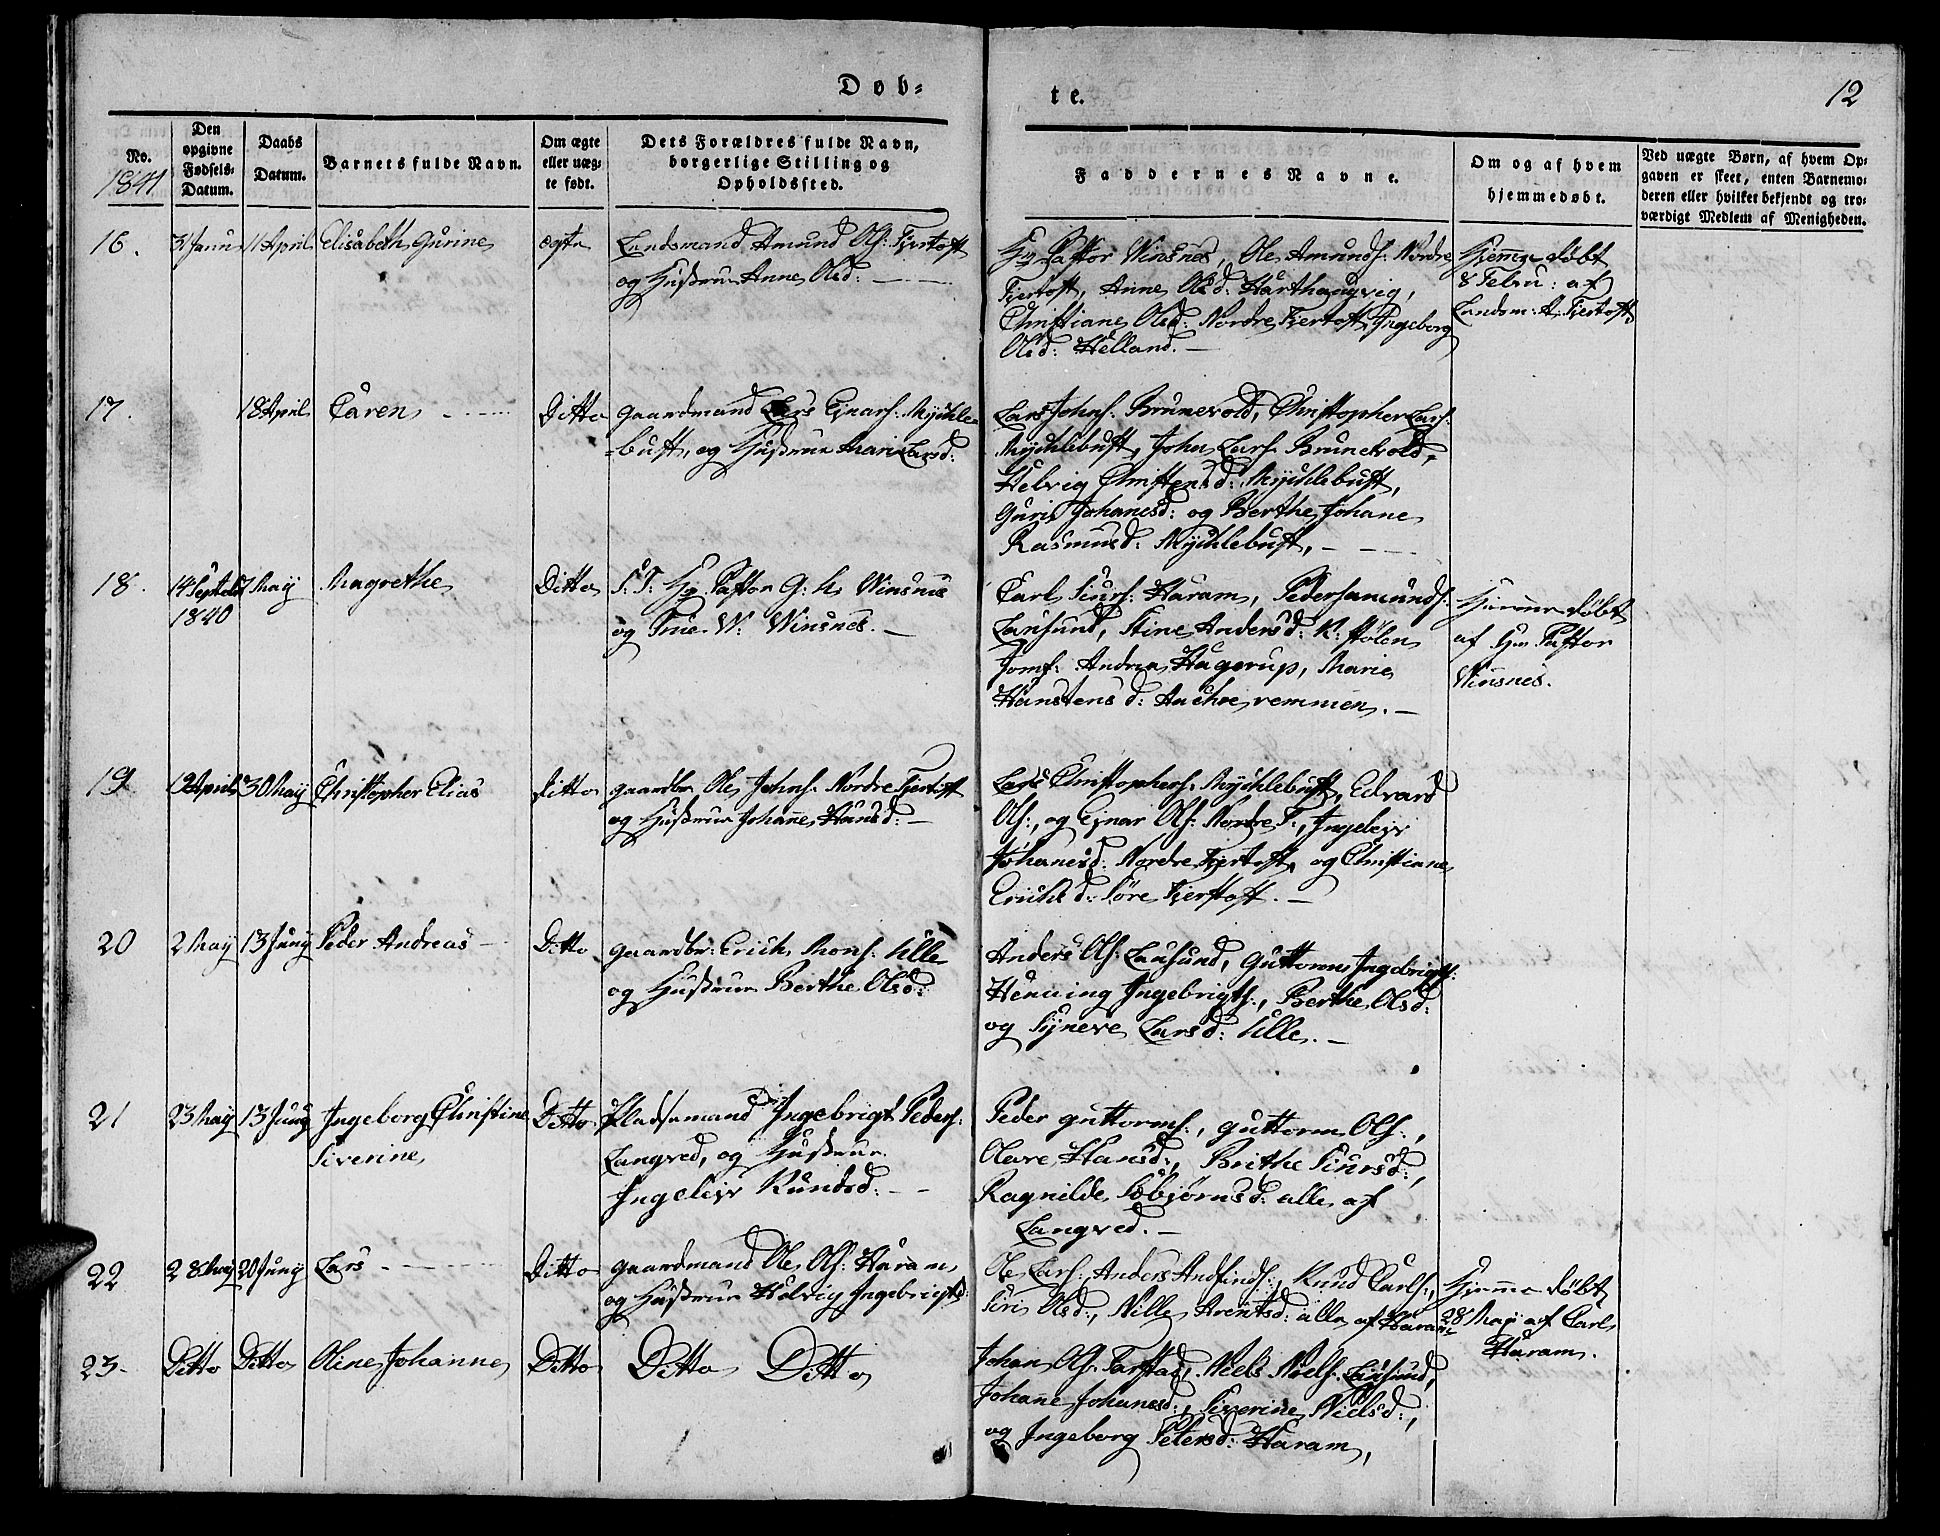 Døb-
te.
12
No.
1841
Den
opgivne
Fødsels-
Datum.
Daabs
Datum.
Barnets fulde Navn.
Om ægte
eller uæg-
te født.
Dets Forældres fulde Navn,
borgerlige Stilling og
Opholdssted.
Faddernes Navne.
Om og af hvem
hjemmedøbt.
Ved uægte Børn, af hvem Op-
gaven er skeet, enten Barnemo-
deren eller hvilket bekjendt og tro-
værdigt Medlem af Menigheden.
16.
31 Janu
11 April
Elisabeth Gurine
ægte
Landsmand Amund Ols: Fjertoft
og Hustrue Anne Olsd:
Hr Pastor Winsnes, Ole Amunds: Nordre
Fjertoft, Anne Olsd: Harthaugvig,
Christiane Olsd: Nordre Fjertoft, Ingeborg
Olsd: Helland.
Hjemme døbt
8 Febru: af
Landsm: A. Fjertoft
17.
18 April
Caren
Ditto
Gaardmand Lars Ejnars: Myckle-
-bust, og Hustrue Marie Larsd:
Lars Johns: Brunevold, Christopher Lars:
Mycklebust, John Lars: Brunevold,
Helvig Christensd: Mycklebust,
Guri Johanesd: og Berthe Johane
Rasmusd: Mycklebust,
18.
14 Septe
1840
7 May
Magrethe
Ditto
S: T: Hr Pastor G: h: Winsnes
og Frue W: Winsnes.
Carl Siurs: Haram, Peder Samunds:
Lausund, Stine Andersd: K: stølen
Jomf: Andrea Hagerup, Marie
Hanstens d: Auckre remmen.
Hjemme døbt
af Hr Pastor
Winsnes.
19
12 April
30 May
Christopher Elias
Ditto
gaardbr Ole Johns: Nordre Fjertoft
og Hustrue Johane Hansd:
Lars Christophers: Mycklebust, Edvard
Ols:, og Ejnar Ols: Nordre F:, Ingeleiv
Johanesd: Nordre Fjertoft, og Christiane
Ericks d: Søre Fjertoft.
20
2 May
13 Juny
Peder Andreas
Ditto
gaardbr: Erick Mons: Ulle
og Hustrue Berthe Olsd:
Anders Ols: Lausund, Guttorm Ingebrigts:
Henning Ingebrigts:, Berthe Olsd:
og Syneve Larsd: Ulle.
21
23 May
13 Juny
Ingeborg Christine
Siverine
Ditto
Pladsemand Ingebrigt Peders:
Langved, og Hustrue
Ingeleiv Knudsd:
Peder Guttorms:, Guttorm Ols:,
Olave Hansd:, Brithe Siursd:,
Ragnilde Esbjørnsd: alle af
Langved.
22
28 May
20 Juny
Lars
Ditto
gaardmand Ole Ols: Haram
og Hustrue Helvig Ingebrigtsd:
Ole Lars:, Anders Andfinds:, Knud Carls:,
Siri Olsd:, Nille Arentsd: alle af Haram
Hjemme døbt
28 May af Carl
Haram.
23.
Ditto
Ditto
Oline Johanne
Ditto
Ditto Ditto
Johan Ols: Farstad, Niels Niels: Lausund,
Johane Johanesd:, Siverine Nielsd:,
og Ingeborg Petersd: Haram,